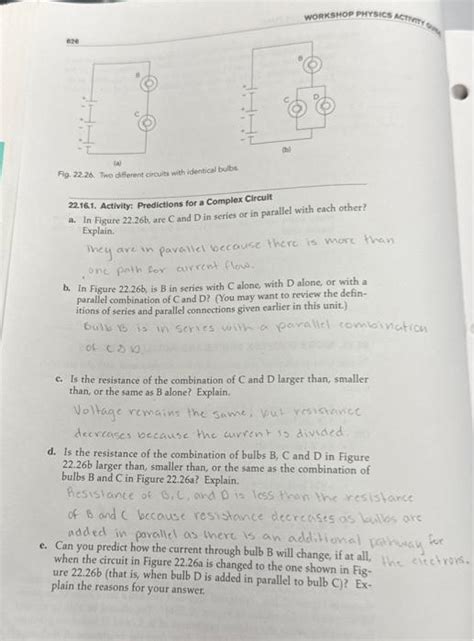 WORKSHOP PHYSICS ACTIVITY GUIDE
626
B
C
B
C
D
(a)
(b)
Fig. 22.26. Two different circuits with identical bulbs.
22.16.1. Activity: Predictions for a Complex Circuit
a. In Figure 22.26b, are C and D in series or in parallel with each other?
Explain.
They are in parallel because there is more than
one path for current flow.
b. In Figure 22.26b, is B in series with C alone, with D alone, or with a
parallel combination of C and D? (You may want to review the defin-
itions of series and parallel connections given earlier in this unit.)
Bulb B is in series with a parallel combination
of C
c. Is the resistance of the combination of C and D larger than, smaller
than, or the same as B alone? Explain.
Voltage remains the same, but resistance
decreases because the current is divided.
d. Is the resistance of the combination of bulbs B, C and D in Figure
22.26b larger than, smaller than, or the same as the combination of
bulbs B and C in Figure 22.26a? Explain.
Resistance of B, C, and D is less than the resistance
of B and C because resistance decreases as bulbs are
added in parallel as there is an additional pathway for
the electrons.
e. Can you predict how the current through bulb B will change, if at all,
when the circuit in Figure 22.26a is changed to the one shown in Fig-
ure 22.26b (that is, when bulb D is added in parallel to bulb C)? Ex-
plain the reasons for your answer.